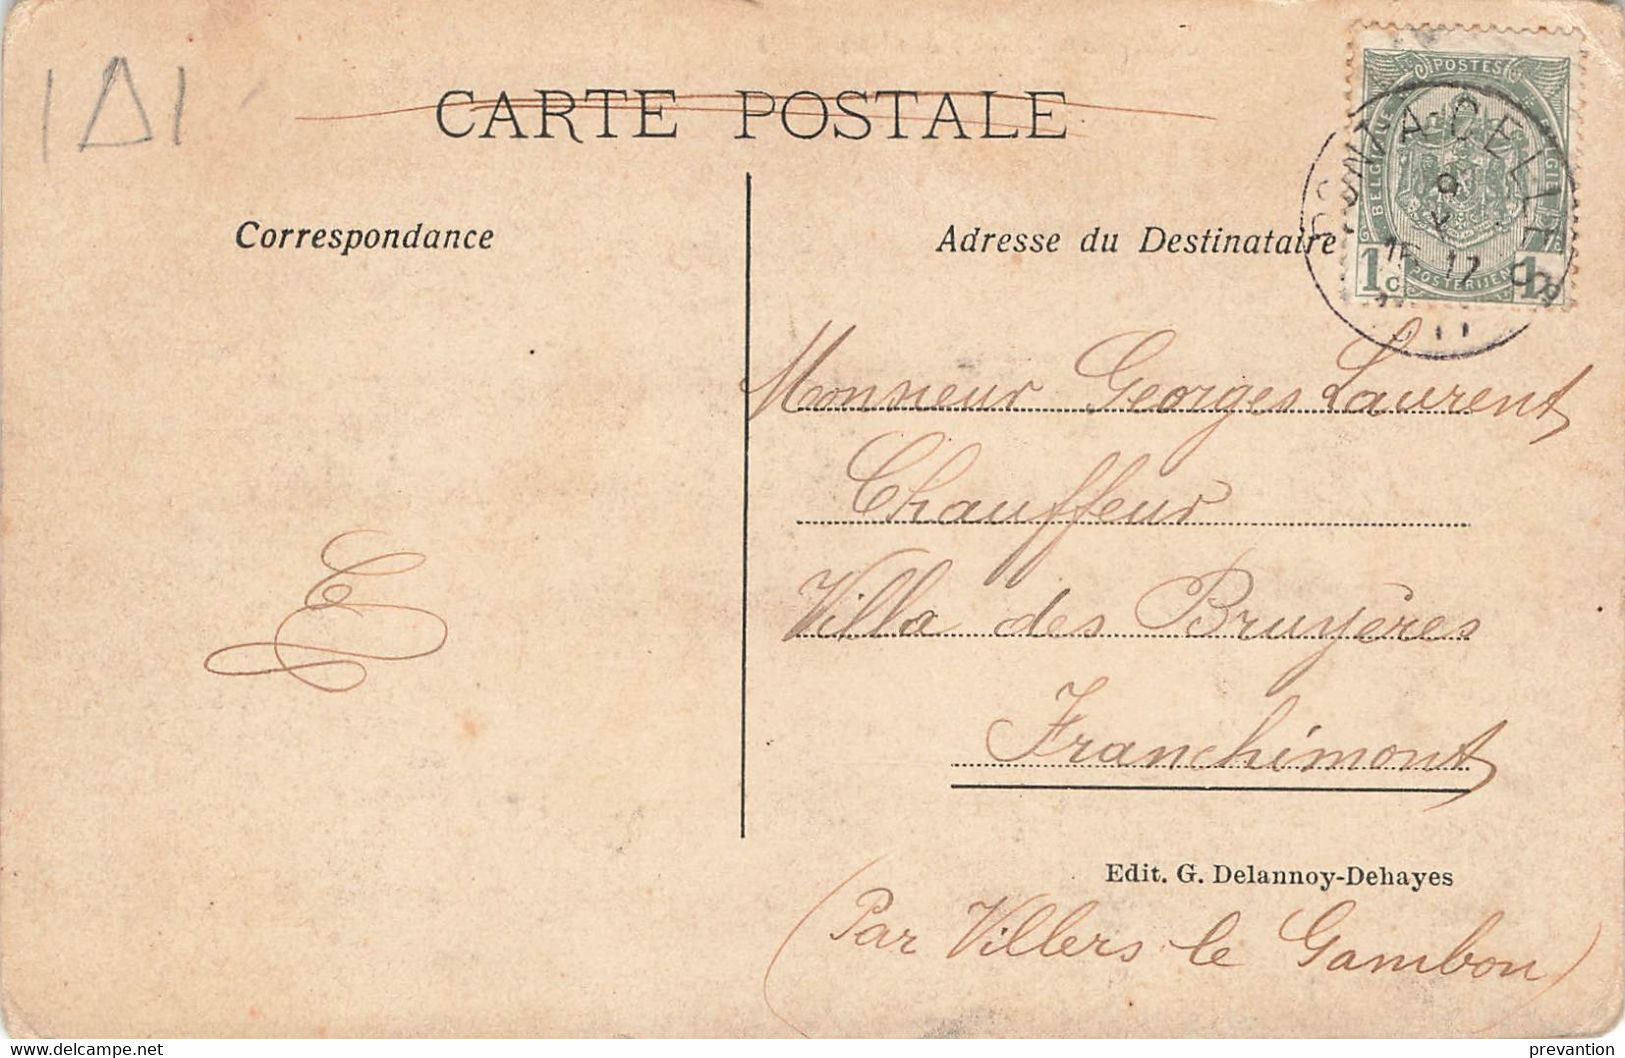 CARTE POSTALE
Correspondance
Adresse du Destinataire
POSTES
BELGIQUE BELGIË
1c
POSTERIJEN
Monsieur Georges Laurent
Chauffeur
Villa des Bruyères
Franchimont
Edit. G. Delannoy-Dehayes
(Par Villers le Gambon)
E
delcampe.net
prevantion